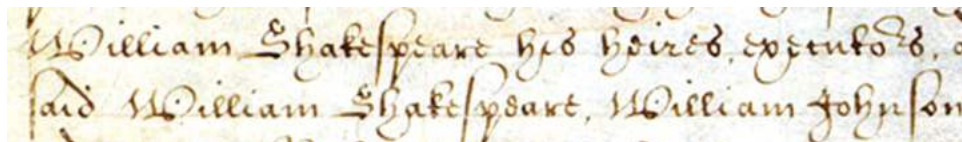 William Shakespeare his heires, executors,
said William Shakespeare, William Johnson